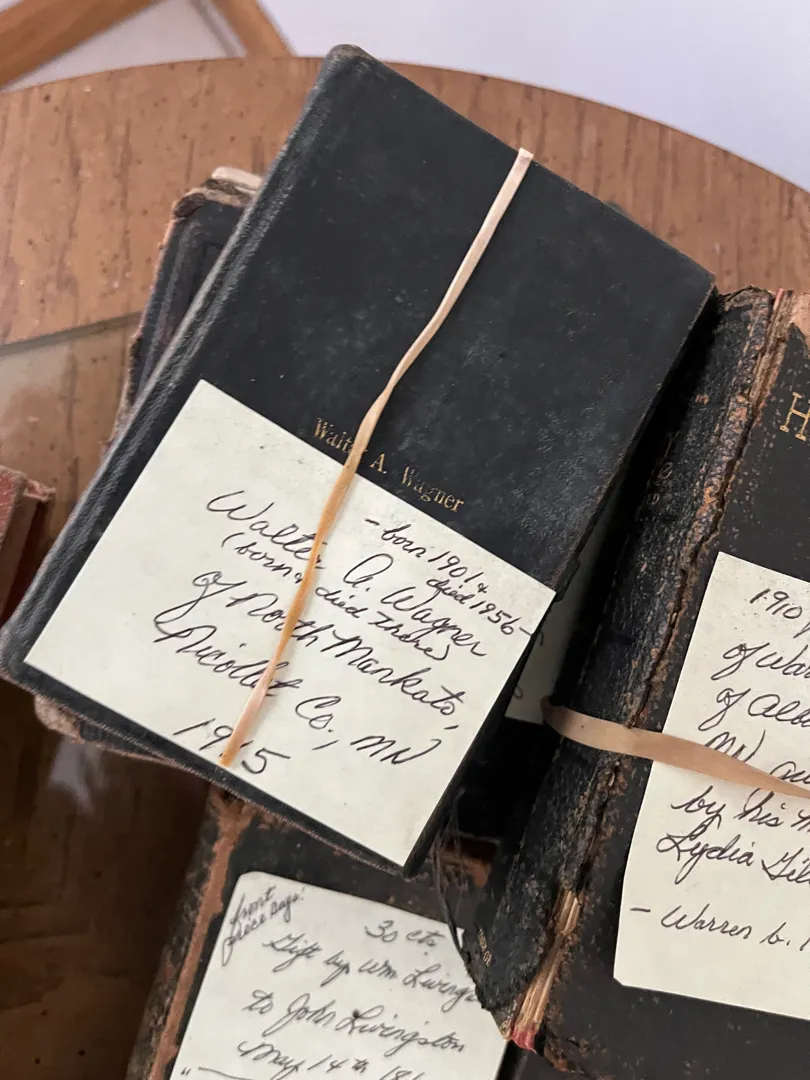 Walter A. Wagner
- born 1901 &
died 1956 -
Walter A. Wagner
(born & died there)
of North Mankato,
Nicollet Co., MN
1915
H
1910
of
of
MN
by his
Lydia
- Warren b.
front
piece says:
30 cts.
Gift by Wm Livings
to John Livingston
May 14th 18
"